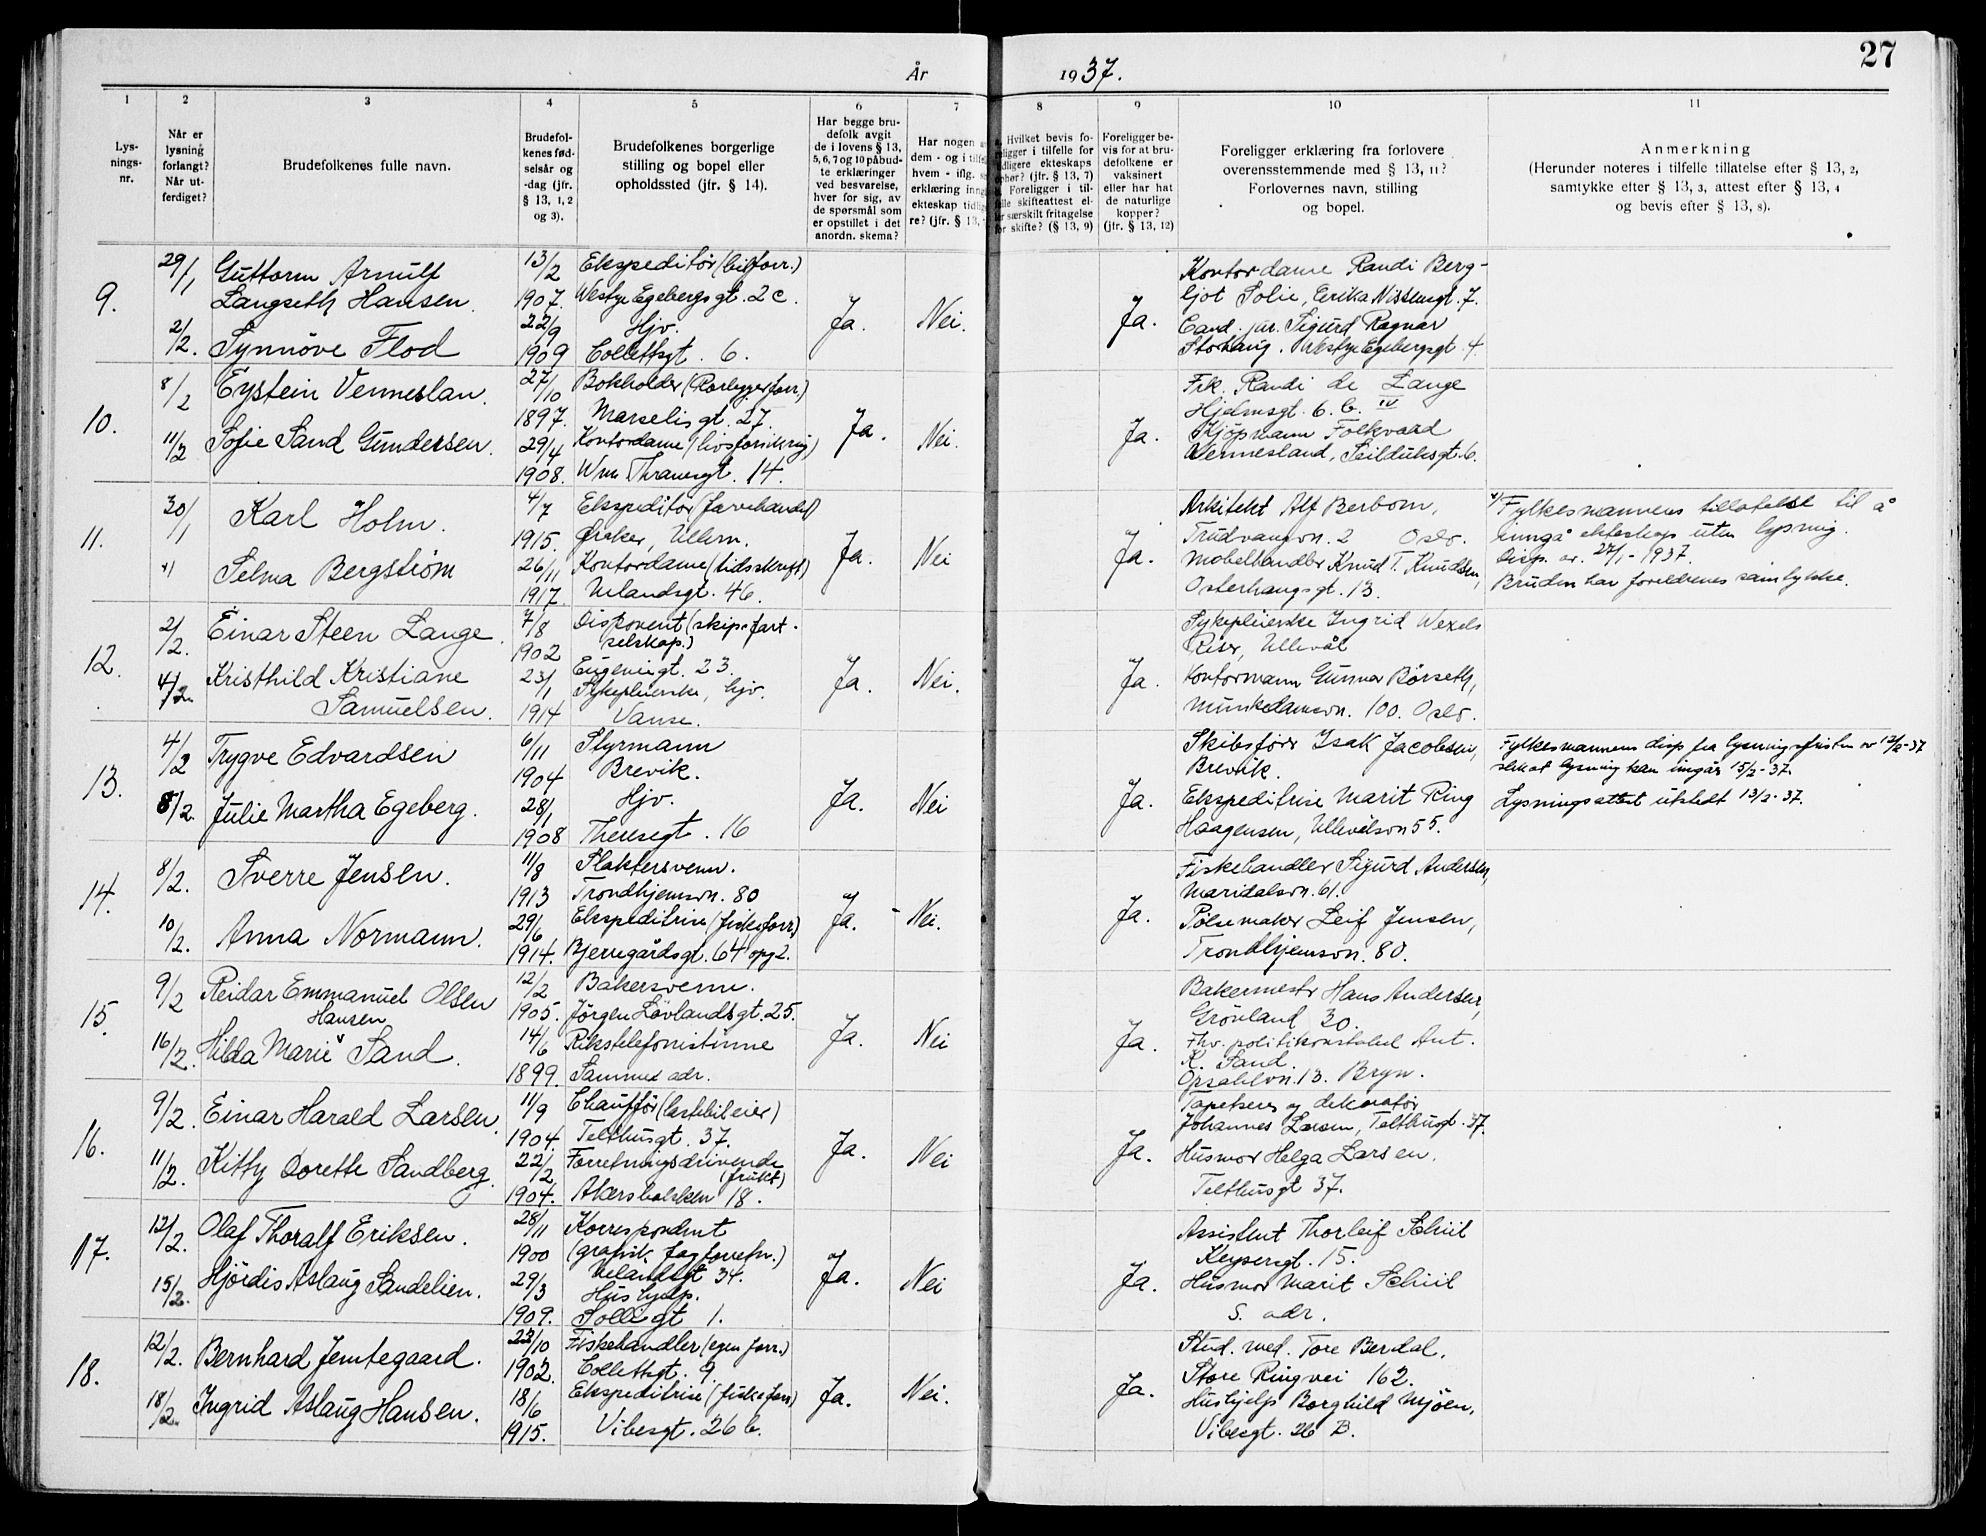 År 1937.
27
1 2 3 4 5 6 7 8 9 10 11
Lys-
nings-
nr.
Når er
lysning
forlangt?
Når ut-
ferdiget?
Brudefolkenes fulle navn.
Brudefol-
kenes fød-
selsår og
-dag (jfr.
§ 13, 1, 2
og 3).
Brudefolkenes borgerlige
stilling og bopel eller
opholdssted (jfr. § 14).
Har begge bru-
defolk avgit
de i lovens § 13,
5, 6, 7 og 10 påbud-
te erklæringer
ved besvarelse,
hver for sig, av
de spørsmål som
er opstillet i det
anordn. skema?
Har nogen
dem - og i tilfe
hvem - iflg.
erklæring inng
ekteskap tidlig
re? (jfr. § 13,
Hvilket bevis fo-
religger i tilfelle for
tidligere ekteskaps
ophør? (jfr. § 13, 7)
Foreligger i til-
felle skifteattest el-
ler særskilt fritagelse
for skifte? (§ 13, 9)
Foreligger be-
vis for at bru-
defolkene er
vaksinert
eller har hat
de naturlige
kopper?
(jfr. § 13, 12)
Foreligger erklæring fra forlovere
overensstemmende med § 13, 11?
Forlovernes navn, stilling
og bopel.
Anmerkning
(Herunder noteres i tilfelle tillatelse efter § 13, 2,
samtykke efter § 13, 3, attest efter § 13, 4
og bevis efter § 13, 8).
9.
29/1
2/2.
Guttorm Arnulf
Langseth Hansen.
Synnöve Flod
13/2
1907.
22/9
1909
Ekspeditör (bilforr.)
Westye Egebergsgt. 2 c.
Hjv.
Collettsgt. 6.
Ja.
Nei.
Ja.
Kontordame Randi Berg-
ljot Solie, Eerika Nissensgt. 7.
Cand. jur. Sigurd Ragnar
Storhaug. Westye Egebergsgt. 4.
10.
8/2
11/2
Eystein Venneslan.
Sofie Sand Gundersen.
27/10
1897.
29/4
1908.
Bokholder (Rørleggerforr.)
Marselis gt. 27.
Kontordame (livsforsikring)
Wm Thranesgt. 14.
Ja.
Nei.
Ja.
Frk. Randi de Lange
Hjelmsgt. 6. b. IV
Kjöpmann Folkvard
Vennesland, Seilduksgt. 6.
11.
30/1
Karl Holm.
Selma Bergström
4/7
1915.
26/11
1917.
Ekspeditör (farvehandel)
Øraker, Ullern.
Kontordame (tidsskrift)
Uelandsgt. 46.
Ja.
Nei
Ja.
Arkitekt Alf Berbom,
Trudvangvn. 2 Oslo.
Møbelhandler Knud T. Knudsen,
Osterhausgt. 13.
Fylkesmannens tillatelse til å
inngå ekteskap uten lysning.
Disp. av 27/1-1937.
Bruden har foreldrenes samtykke.
12.
2/2.
4/2.
Einar Steen Lange.
Kristhild Kristiane
Samuelsen.
7/8
1902
23/1
1914
Disponent (skipsfart-
selskap.)
Eugeniegt. 23.
Sykepleierske, hjv.
Vanse.
Ja.
Nei.
Ja.
Sykepleierske Ingrid Wexels
Riser, Ullevål
Kontormann Gunnar Börseth,
Munkedamsvn. 100. Oslo.
13.
4/2
8/2.
Trygve Edvardsen
Julie Martha Egeberg.
6/11
1904
28/1
1908
Styrmann
Brevik.
Hjv.
Theresegt. 16
Ja.
Nei
Ja.
Skibsförer Isak Jacobsen,
Brevik.
Ekspeditrise Marit Ring
Haagensen, Ullevålsvn 55.
Fylkesmannens disp fra lysningsfristen av 12/2-37
slik at lysning kan inngås 15/2-37.
Lysningsattest utstedt 13/2-37.
14.
8/2.
10/2.
Sverre Jensen.
Anna Normann.
11/8
1913
29/6
1914.
Slaktersvenn.
Trondhjemsvn. 80
Ekspeditrise (fiskeforr.)
Bjerregårdsgt. 64 opg 2.
Ja.
Nei.
Ja.
Fiskehandler Sigurd Andersen,
Maridalsvn. 61.
Pölsemaker Leif Jensen,
Trondhjemsvn. 80.
15.
9/2
16/2.
Reidar Emmanuel Olsen
Hansen
Hilda Marie Sand.
12/2
1905.
14/6
1899.
Bakersvenn.
Jörgen Lövlandsgt. 25.
Rikstelefonistinne
Samme adr.
Ja.
Nei
Ja.
Bakermestr Hans Andersen,
Grönland 30.
Fhv. politikonstabel Ant.
K. Sand.
Opsahlvn. 13. Bryn.
16.
9/2.
11/2.
Einar Harald Larsen.
Kitty Dorette Sandberg.
11/9
1904.
22/2
1904.
Chauffør (lastebileier)
Telthusgt. 37.
Forretningsdrivende
(frukt)
Akersbakken 18.
Ja.
Nei
Ja.
Tapetserer og dekoratör
Johannes Larsen, Telthusgt. 37.
Husmor Helga Larsen.
Telthusgt 37.
17.
12/2.
15/2.
Olaf Thoralf Eriksen.
Hjördis Aslaug Sandelien.
28/11
1900
29/3
1909.
Korrespondent
(grafisk fagforretn.)
Uelandsgt 34.
Hushjelp.
Solligt 1.
Ja.
Nei
Ja.
Assistent Thorleif Schiil
Keysersgt. 15.
Husmor Marit Schiil
S. adr.
18.
12/2.
18/2.
Bernhard Jemtegaard.
Ingrid Aslaug Hansen.
22/10
1902.
18/6
1915.
Fiskehandler (egen forr.)
Collettsgt. 9.
Ekspeditrise (fiskeforr)
Vibesgt. 26 b.
Ja.
Nei.
Ja.
Stud. med. Tore Berdal.
Store Ringvei 162.
Hushjelp Borghild Mjöen,
Vibesgt. 26 B.